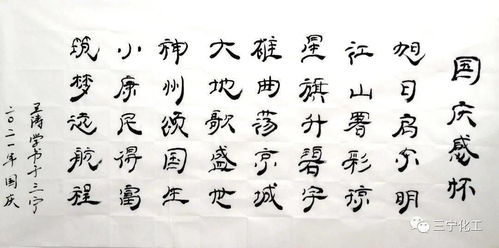 国庆感怀
旭日启东明
江山署彩琼
星旗升碧宇
雄曲荡京城
大地歌盛世
神州颂国生
小康民得富
筑梦远航程
王涛学书于三宁
二〇二一年国庆
三宁化工